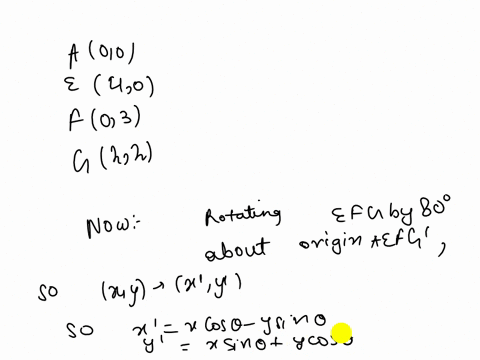 A (0,0)
E (4,0)
F (0,3)
G (2,2)
Now:- Rotating EFG by 80°
about origin AEFG',
so (x,y) → (x',y')
so x' = x cosθ - y sinθ
y' = x sinθ + y cosθ